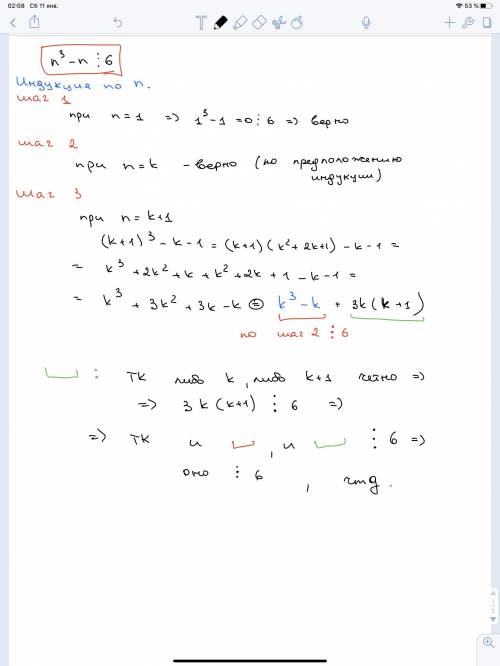 02:08 Сб 11 янв.
53 %
n³ - n ⋮ 6
Индукция по n.
шаг 1
при n = 1 => 1³ - 1 = 0 ⋮ 6 => верно
шаг 2
при n = k - верно (по предположению
индукции)
шаг 3
при n = k+1
(k+1)³ - k - 1 = (k+1)(k² + 2k + 1) - k - 1 =
= k³ + 2k² + k + k² + 2k + 1 - k - 1 =
= k³ + 3k² + 3k - k = k³ - k + 3k(k+1)
по шаг 2 ⋮ 6
: тк либо k, либо k+1 четно =>
=> 3k(k+1) ⋮ 6 =>
=> тк и , и ⋮ 6 =>
оно ⋮ 6 , чтд.